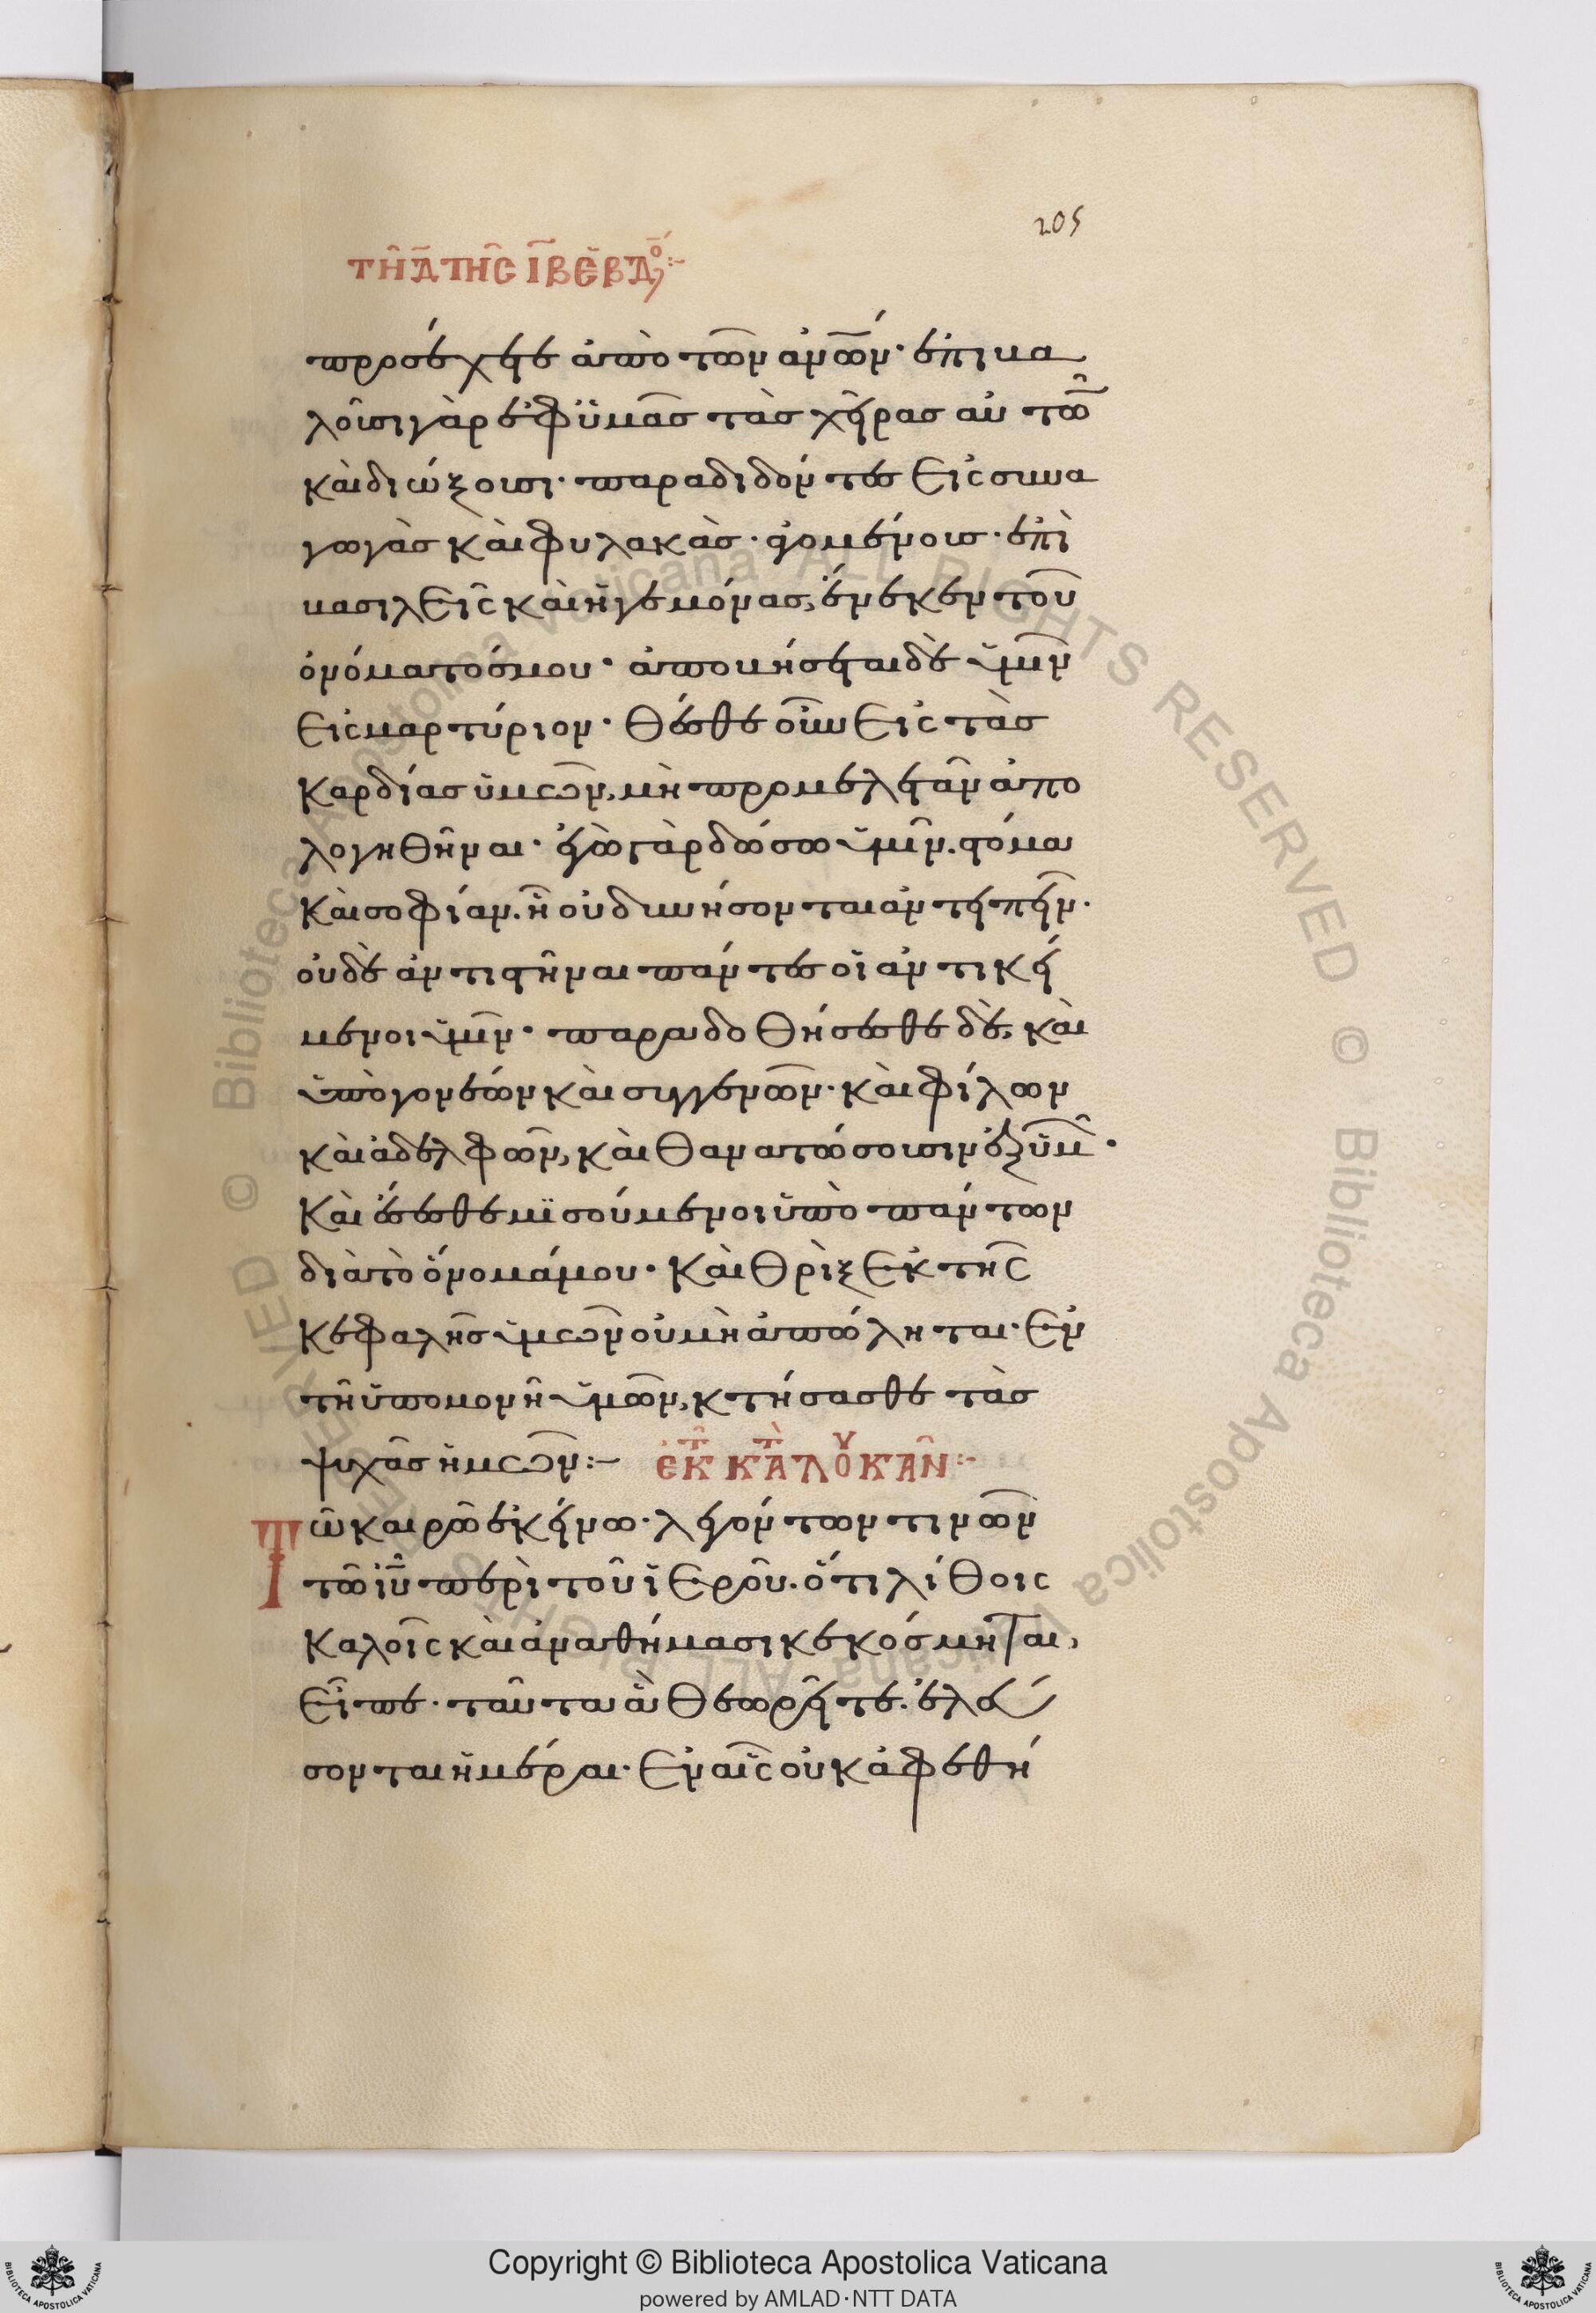 205
τῆ δ̄ τῆς ῑβ ἑβδο
προσέχετε ἀπὸ τῶν ἀνῶν· ἐπιβα
λοῦσι γὰρ ἐφ ὑμᾶς τὰς χεῖρας αὐτῶ
καὶ διώξουσι· παραδιδόντες εἰς συνα
γωγὰς καὶ φυλακὰς· ἀγομένους· ἐπὶ
βασιλεῖς καὶ ἡγεμόνας, ἕνεκεν τοῦ
ὀνόματός μου· ἀποβήσεται δὲ ὑμῖν
εἰς μαρτύριον· θέσθε οὖν εἰς τὰς
καρδίας ὑμῶν, μὴ προμελετᾶν ἀπο
λογηθῆναι· ἐγὼ γὰρ δώσω ὑμῖν. στόμα
καὶ σοφίαν. ἧ οὐ δυνήσονται ἀντειπεῖν·
οὐδὲ ἀντιστῆναι πάντες οἱ ἀντικεί
μενοι ὑμῖν· παραδοθήσεσθε δὲ, καὶ
ὑπὸ γονέων καὶ συγγενῶν· καὶ φίλων
καὶ ἀδελφῶν, καὶ θανατώσουσιν ἐξ ὑμ·
καὶ ἔσεσθε μισούμενοι ὑπὸ πάντων
διὰ τὸ ὄνομά μου· καὶ θρὶξ ἐκ τῆς
κεφαλῆς ὑμῶν οὐ μὴ ἀπόληται· ἐν
τῆ ὑπομονῆ ὑμῶν, κτήσασθε τὰς
ψυχὰς ἡμῶν:– ἐκ τ κατὰ λουκᾶν:–
Τῶ καιρῶ ἐκείνω· λεγόντων τινῶν
τῶ ἰυ περὶ τοῦ ἱεροῦ. ὅτι λίθοις
καλοῖς καὶ ἀναθήμασι κεκόσμηται,
εἶπε· ταῦτα ἃ θεωρεῖτε. ἐλεύ
σονται ἡμέραι· ἐν αἷς οὐκ ἀφεθή
Copyright © Biblioteca Apostolica Vaticana
powered by AMLAD·NTT DATA